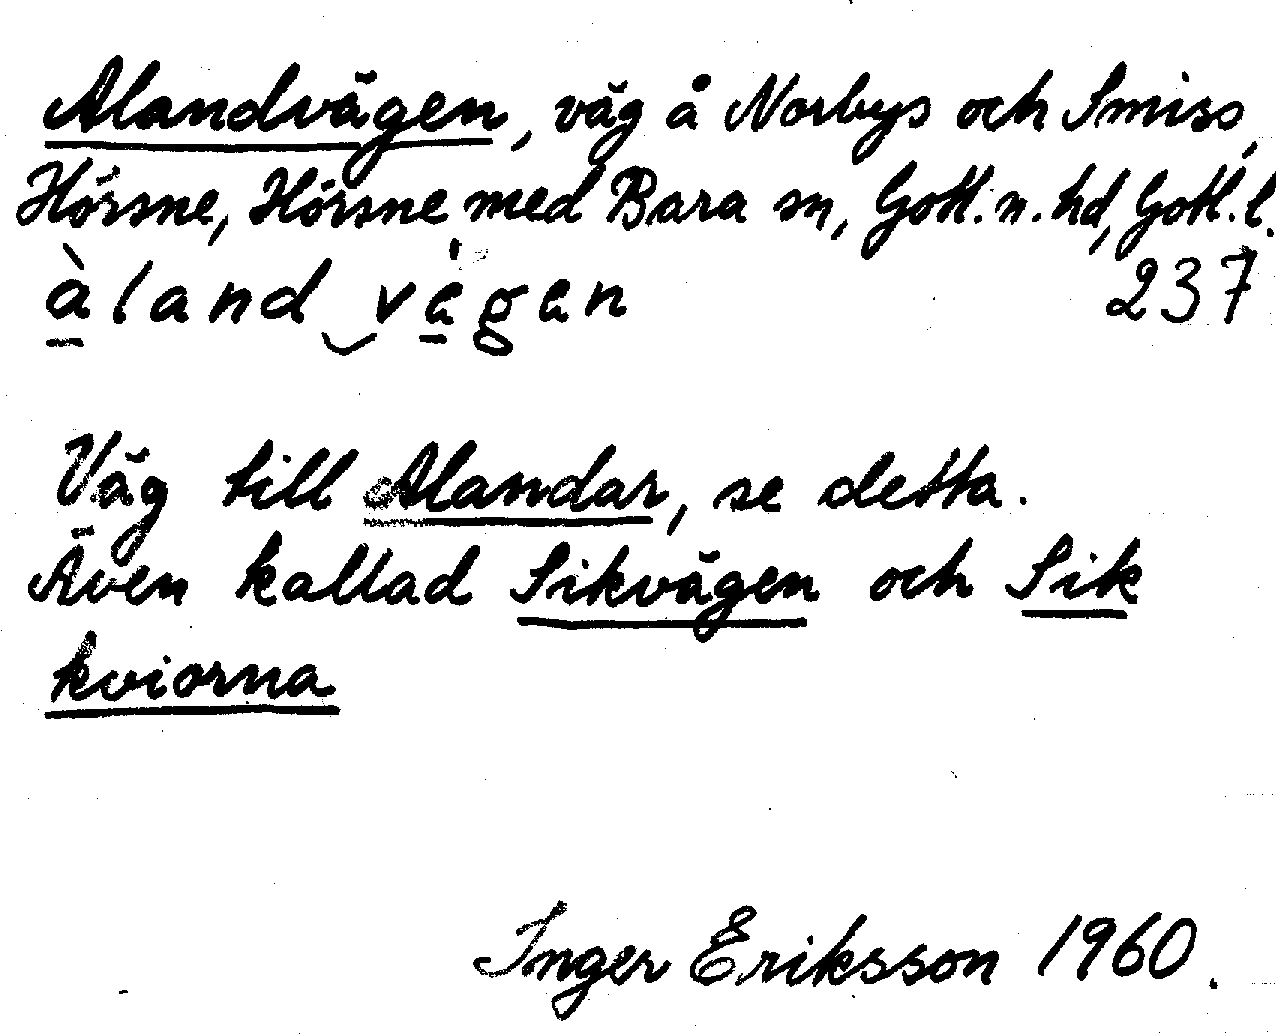 Alandvägen, väg å Norbys och Smiss,
Hörsne, Hörsne med Bara sn, Gotl. n. hd, Gotl. l.
àland vègen 237
Väg till Alandar, se detta.
Även kallad Sikvägen och Sik
kviorna
Inger Eriksson 1960.